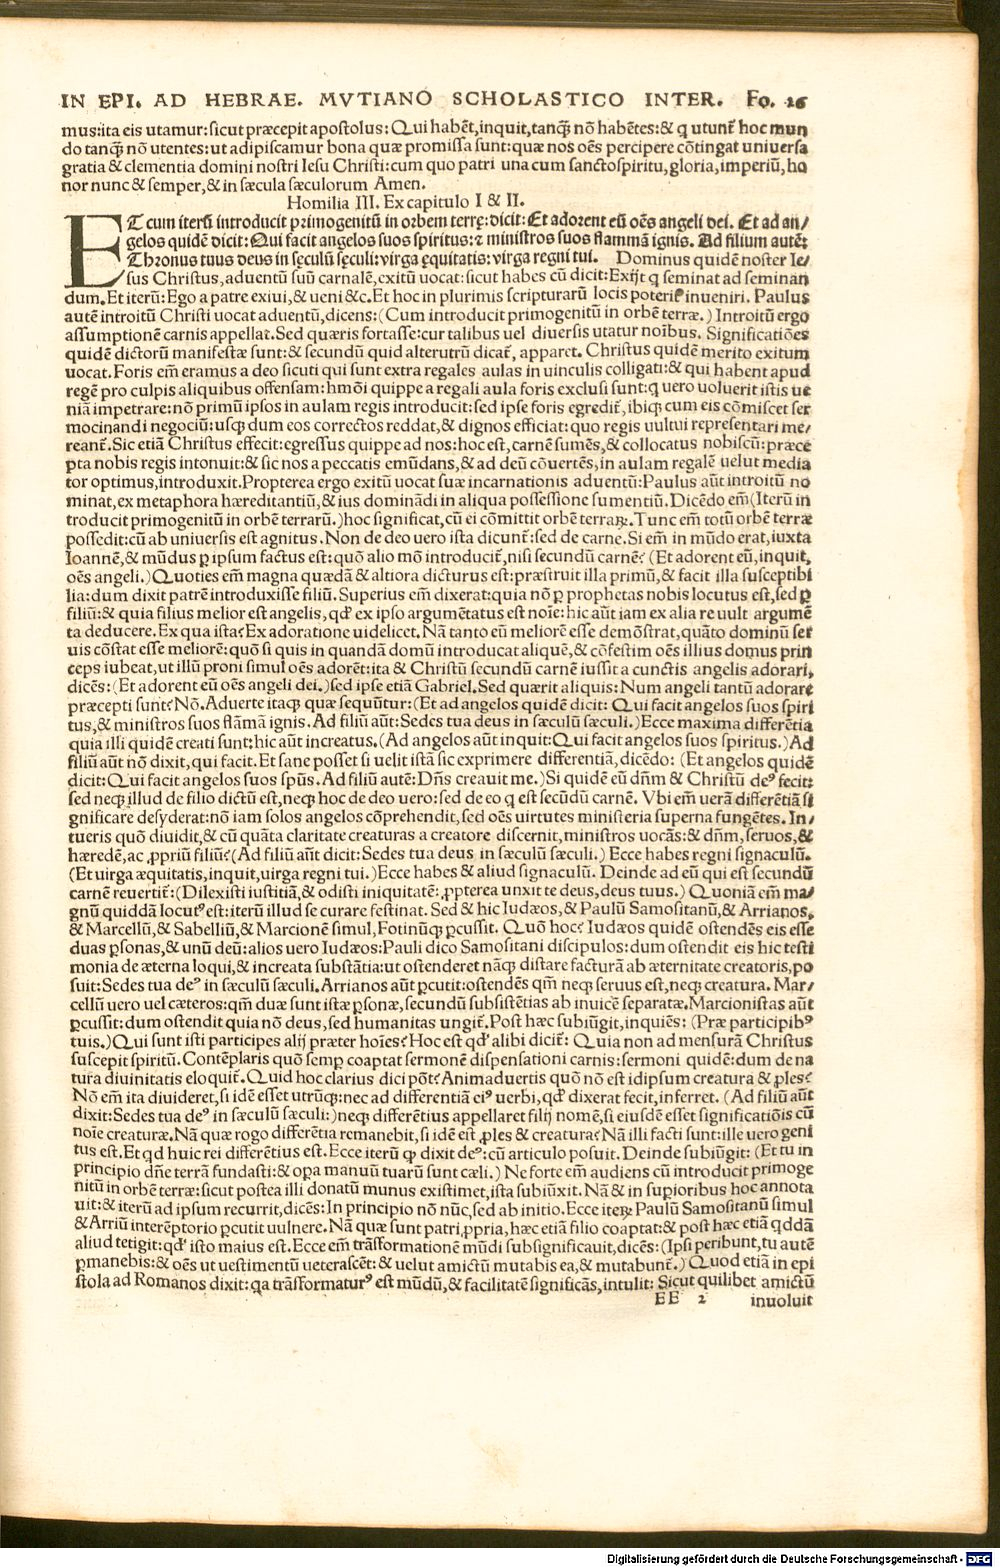 IN EPI. AD HEBRAE. MVTIANO SCHOLASTICO INTER. Fo. 26
mus:ita eis utamur:sicut præcepit apostolus: Qui habēt,inquit,tanq̄ nō habētes:& q utunt̃ hoc mun
do tanq̄ nō utentes:ut adipiscamur bona quæ promissa sunt:quæ nos oēs percipere cōtingat uniuersa
gratia & clementia domini nostri Iesu Christi:cum quo patri una cum sanctospiritu,gloria,imperiū,ho
nor nunc & semper,& in sæcula sæculorum Amen.
Homilia III. Ex capitulo I & II.
ET cum iterū introducit primogenitū in orbem terrę:dicit: Et adorent eū oēs angeli dei. Et ad an/
gelos quidē dicit: Qui facit angelos suos spiritus:⁊ ministros suos flammā ignis. Ad filium autē:
Thronus tuus deus in sęculū sęculi:virga ęquitatis: virga regni tui. Dominus quidē noster Ie/
sus Christus,aduentū suū carnalē,exitū uocat:sicut habes cū dicit:Exijt q seminat ad seminan
dum.Et iterū: Ego a patre exiui,& ueni &c.Et hoc in plurimis scripturarū locis poteris inueniri. Paulus
autē introitū Christi uocat aduentū,dicens:(Cum introducit primogenitū in orbē terræ.) Introitū ergo
assumptionē carnis appellat.Sed quæris fortasse:cur talibus uel diuersis utatur noībus. Significatiōes
quidē dictorū manifestæ sunt:& secundū quid alterutrū dicat̃, apparet. Christus quidē merito exitum
uocat. Foris em̄ eramus a deo sicuti qui sunt extra regales aulas in uinculis colligati:& qui habent apud
regē pro culpis aliquibus offensam:hmōi quippe a regali aula foris exclusi sunt:q uero uoluerit istis ue
niā impetrare:nō primū ipsos in aulam regis introducit:sed ipse foris egredit̃, ibiq; cum eis cōmiscet ser
mocinandi negociū:usq; dum eos correctos reddat,& dignos efficiat:quo regis uultui representari me/
reant̃.Sic etiā Christus effecit:egressus quippe ad nos:hoc est, carnē sumēs,& collocatus nobiscū:præce
pta nobis regis intonuit:& sic nos a peccatis emūdans,& ad deū cōuertēs,in aulam regalē uelut media
tor optimus,introduxit.Propterea ergo exitū uocat suæ incarnationis aduentū:Paulus aūt introitū no
minat,ex metaphora hæreditantiū,& ius dominādi in aliqua possessione sumentiū.Dicēdo em̄(Iterū in
troducit primogenitū in orbē terrarū.)hoc significat,cū ei cōmittit orbē terraꝝ.Tunc em̄ totū orbē terræ
possedit:cū ab uniuersis est agnitus. Non de deo uero ista dicunt̃:sed de carne.Si em̄ in mūdo erat,iuxta
Ioannē,& mūdus ꝑ ipsum factus est:quō alio mō introducit̃,nisi secundū carnē? (Et adorent eū,inquit,
oēs angeli.)Quoties em̄ magna quædā & altiora dicturus est:præstruit illa primū,& facit illa susceptibi
lia:dum dixit patrē introduxisse filiū.Superius em̄ dixerat:quia nō ꝑ prophetas nobis locutus est,sed ꝑ
filiū:& quia filius melior est angelis,qd' ex ipso argumētatus est noīe:hic aūt iam ex alia re uult argumē
ta deducere.Ex qua ista?Ex adoratione uidelicet. Nā tanto eū meliorē esse demōstrat,quāto dominū ser
uis cōstat esse meliorē:quō si quis in quandā domū introducat aliquē,& cōfestim oēs illius domus prin
ceps iubeat,ut illū proni simul oēs adorēt:ita & Christū secundū carnē iussit a cunctis angelis adorari,
dicēs:(Et adorent eū oēs angeli dei.)sed ipse etiā Gabriel.Sed quærit aliquis: Num angeli tantū adorare
præcepti sunt?Nō.Aduerte itaq; quæ sequūtur:(Et ad angelos quidē dicit: Qui facit angelos suos spiri
tus,& ministros suos flāmā ignis.Ad filiū aūt:Sedes tua deus in sæculū sæculi.)Ecce maxima differētia
quia illi quidē creati sunt:hic aūt increatus.(Ad angelos aūt inquit:Qui facit angelos suos spiritus.)Ad
filiū aūt nō dixit,qui facit.Et sane posset si uelit istā sic exprimere differentiā,dicēdo: (Et angelos quidē
dicit:Qui facit angelos suos spūs.Ad filiū autē:Dn̄s creauit me.)Si quidē cū dn̄m & Christū deꝰ fecit:
sed neq; illud de filio dictū est,neq; hoc de deo uero:sed de eo q est secūdū carnē. Vbi em̄ uerā differētiā si
gnificare desyderat:nō iam solos angelos cōprehendit,sed oēs uirtutes ministeria superna fungētes. In/
tueris quō diuidit,& cū quāta claritate creaturas a creatore discernit,ministros uocās:& dn̄m,seruos,&
hæredē,ac ꝓpriū filiū?(Ad filiū aūt dicit:Sedes tua deus in sæculū sæculi.) Ecce habes regni signaculū.
(Et uirga æquitatis,inquit,uirga regni tui.)Ecce habes & aliud signaculū. Deinde ad eū qui est secundū
carnē reuertit̃:(Dilexisti iustitiā,& odisti iniquitatē: ꝓpterea unxit te deus,deus tuus.) Quoniā em̄ ma/
gnū quiddā locutꝰ est:iterū illud se curare festinat. Sed & hic Iudæos,& Paulū Samositanū,& Arrianos,
& Marcellū,& Sabelliū,& Marcionē simul,Fotinūq; ꝑcussit. Quō hoc? Iudæos quidē ostendēs eis esse
duas ꝑsonas,& unū deū:alios uero Iudæos:Pauli dico Samositani discipulos:dum ostendit eis hic testi
monia de æterna loqui,& increata substātia:ut ostenderet nāq; distare facturā ab æternitate creatoris,po
suit:Sedes tua deꝰ in sæculū sæculi.Arrianos aūt ꝑcutit:ostendēs qm̄ neq; seruus est,neq; creatura. Mar/
cellū uero uel cæteros:qm̄ duæ sunt istæ ꝑsonæ,secundū subsistētias ab inuicē separatæ.Marcionistas aūt
ꝑcussit:dum ostendit quia nō deus,sed humanitas ungit̃.Post hæc subiūgit,inquiēs: (Præ participibꝰ
tuis.)Qui sunt isti participes alij præter hoīes?Hoc est qd' alibi dicit̃: Quia non ad mensurā Christus
suscepit spiritū.Contēplaris quō semꝑ coaptat sermonē dispensationi carnis:sermoni quidē:dum de na
tura diuinitatis eloquit̃.Quid hoc clarius dici pōt?Animaduertis quō nō est idipsum creatura & ꝓles?
Nō em̄ ita diuideret,si idē esset utrūq;:nec ad differentiā eiꝰ uerbi,qd' dixerat fecit,inferret. (Ad filiū aūt
dixit:Sedes tua deꝰ in sæculū sæculi:)neq; differētius appellaret filij nomē,si eiusdē esset significatiōis cū
noīe creaturæ.Nā quæ rogo differētia remanebit,si idē est ꝓles & creatura?Nā illi facti sunt:ille uero geni
tus est.Et qd huic rei differētius est.Ecce iterū ꝙ dixit deꝰ:cū articulo posuit. Deinde subiūgit: (Et tu in
principio dn̄e terrā fundasti:& opa manuū tuarū sunt cæli.) Ne forte em̄ audiens cū introducit primoge
nitū in orbē terræ:sicut postea illi donatū munus existimet,ista subiūxit. Nā & in supioribus hoc annota
uit:& iterū ad ipsum recurrit,dicēs:In principio nō nūc,sed ab initio.Ecce iteꝝ Paulū Samositanū simul
& Arriū interēptorio ꝑcutit uulnere. Nā quæ sunt patri ꝓpria,hæc etiā filio coaptat:& post hæc etiā qddā
aliud tetigit:qd' isto maius est.Ecce em̄ trāsformationē mūdi subsignificauit,dicēs: (Ipsi peribunt,tu autē
ꝑmanebis:& oēs ut uestimentū ueterascēt:& uelut amictū mutabis ea,& mutabunt̃.) Quod etiā in epi
stola ad Romanos dixit:qa trāsformaturꝰ est mūdū,& facilitatē significās,intulit: Sicut quilibet amictū
EE 2 inuoluit
Digitalisierung gefördert durch die Deutsche Forschungsgemeinschaft - DFG